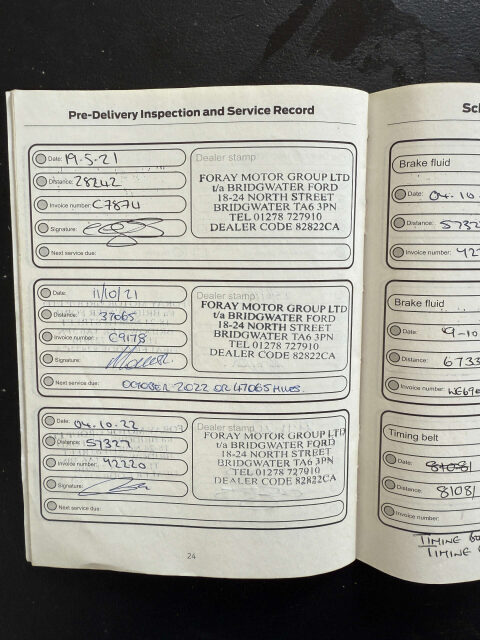 Pre-Delivery Inspection and Service Record
Date: 19.5.21
Distance: 28242
Invoice number: C7874
Signature:
Next service due:
Dealer stamp
FORAY MOTOR GROUP LTD
t/a BRIDGWATER FORD
18-24 NORTH STREET
BRIDGWATER TA6 3PN
TEL 01278 727910
DEALER CODE 82822CA
Date: 11/10/21
Distance: 37065
Invoice number: C9178
Signature:
Next service due: OCTOBER 2022 OR 47065 MILES.
Dealer stamp
FORAY MOTOR GROUP LTD
t/a BRIDGWATER FORD
18-24 NORTH STREET
BRIDGWATER TA6 3PN
TEL 01278 727910
DEALER CODE 82822CA
Date: 04.10.22
Distance: 57327
Invoice number: 42220
Signature:
Next service due:
Dealer stamp
FORAY MOTOR GROUP LTD
t/a BRIDGWATER FORD
18-24 NORTH STREET
BRIDGWATER TA6 3PN
TEL 01278 727910
DEALER CODE 82822CA
24
Brake fluid
Date: 04.10
Distance: 5732
Invoice number: 422
Brake fluid
Date: 9-10
Distance: 673
Invoice number:
Timing belt
Date: 81081
Distance: 81081
Invoice number:
TIMING
TIMING